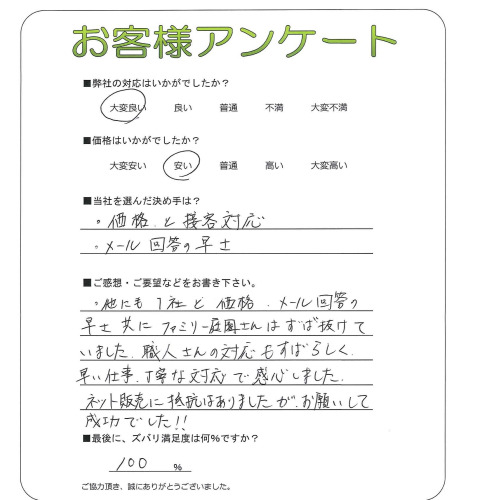 お客様アンケート
■弊社の対応はいかがでしたか?
大変良い 良い 普通 不満 大変不満
■価格はいかがでしたか?
大変安い 安い 普通 高い 大変高い
■当社を選んだ決め手は?
。価格と接客対応
。メール回答の早士
■ご感想・ご要望などをお書き下さい。
。他にも7社と価格.メール回答の
早士共にファミリー庭園さんはずば抜けて
いました.職人さんの対応もすばらしく.
早い仕事.丁寧な対応で感心しました.
ネット販売に抵抗はありましたが.お願いして
成功でした!!
■最後に、ズバリ満足度は何%ですか?
100 %
ご協力頂き、誠にありがとうございました。